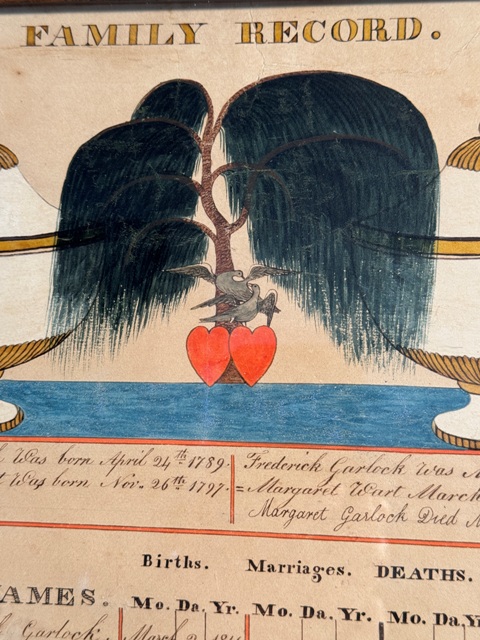 FAMILY RECORD.
Was born April 24th 1789.
Was born Nov. 26th 1797. =
Frederick Garlock Was
Margaret Wart March
Margaret Garlock Died
Births. Marriages. DEATHS.
AMES. Mo. Da. Yr. Mo. Da. Yr. Mo. Da.
Garlock March